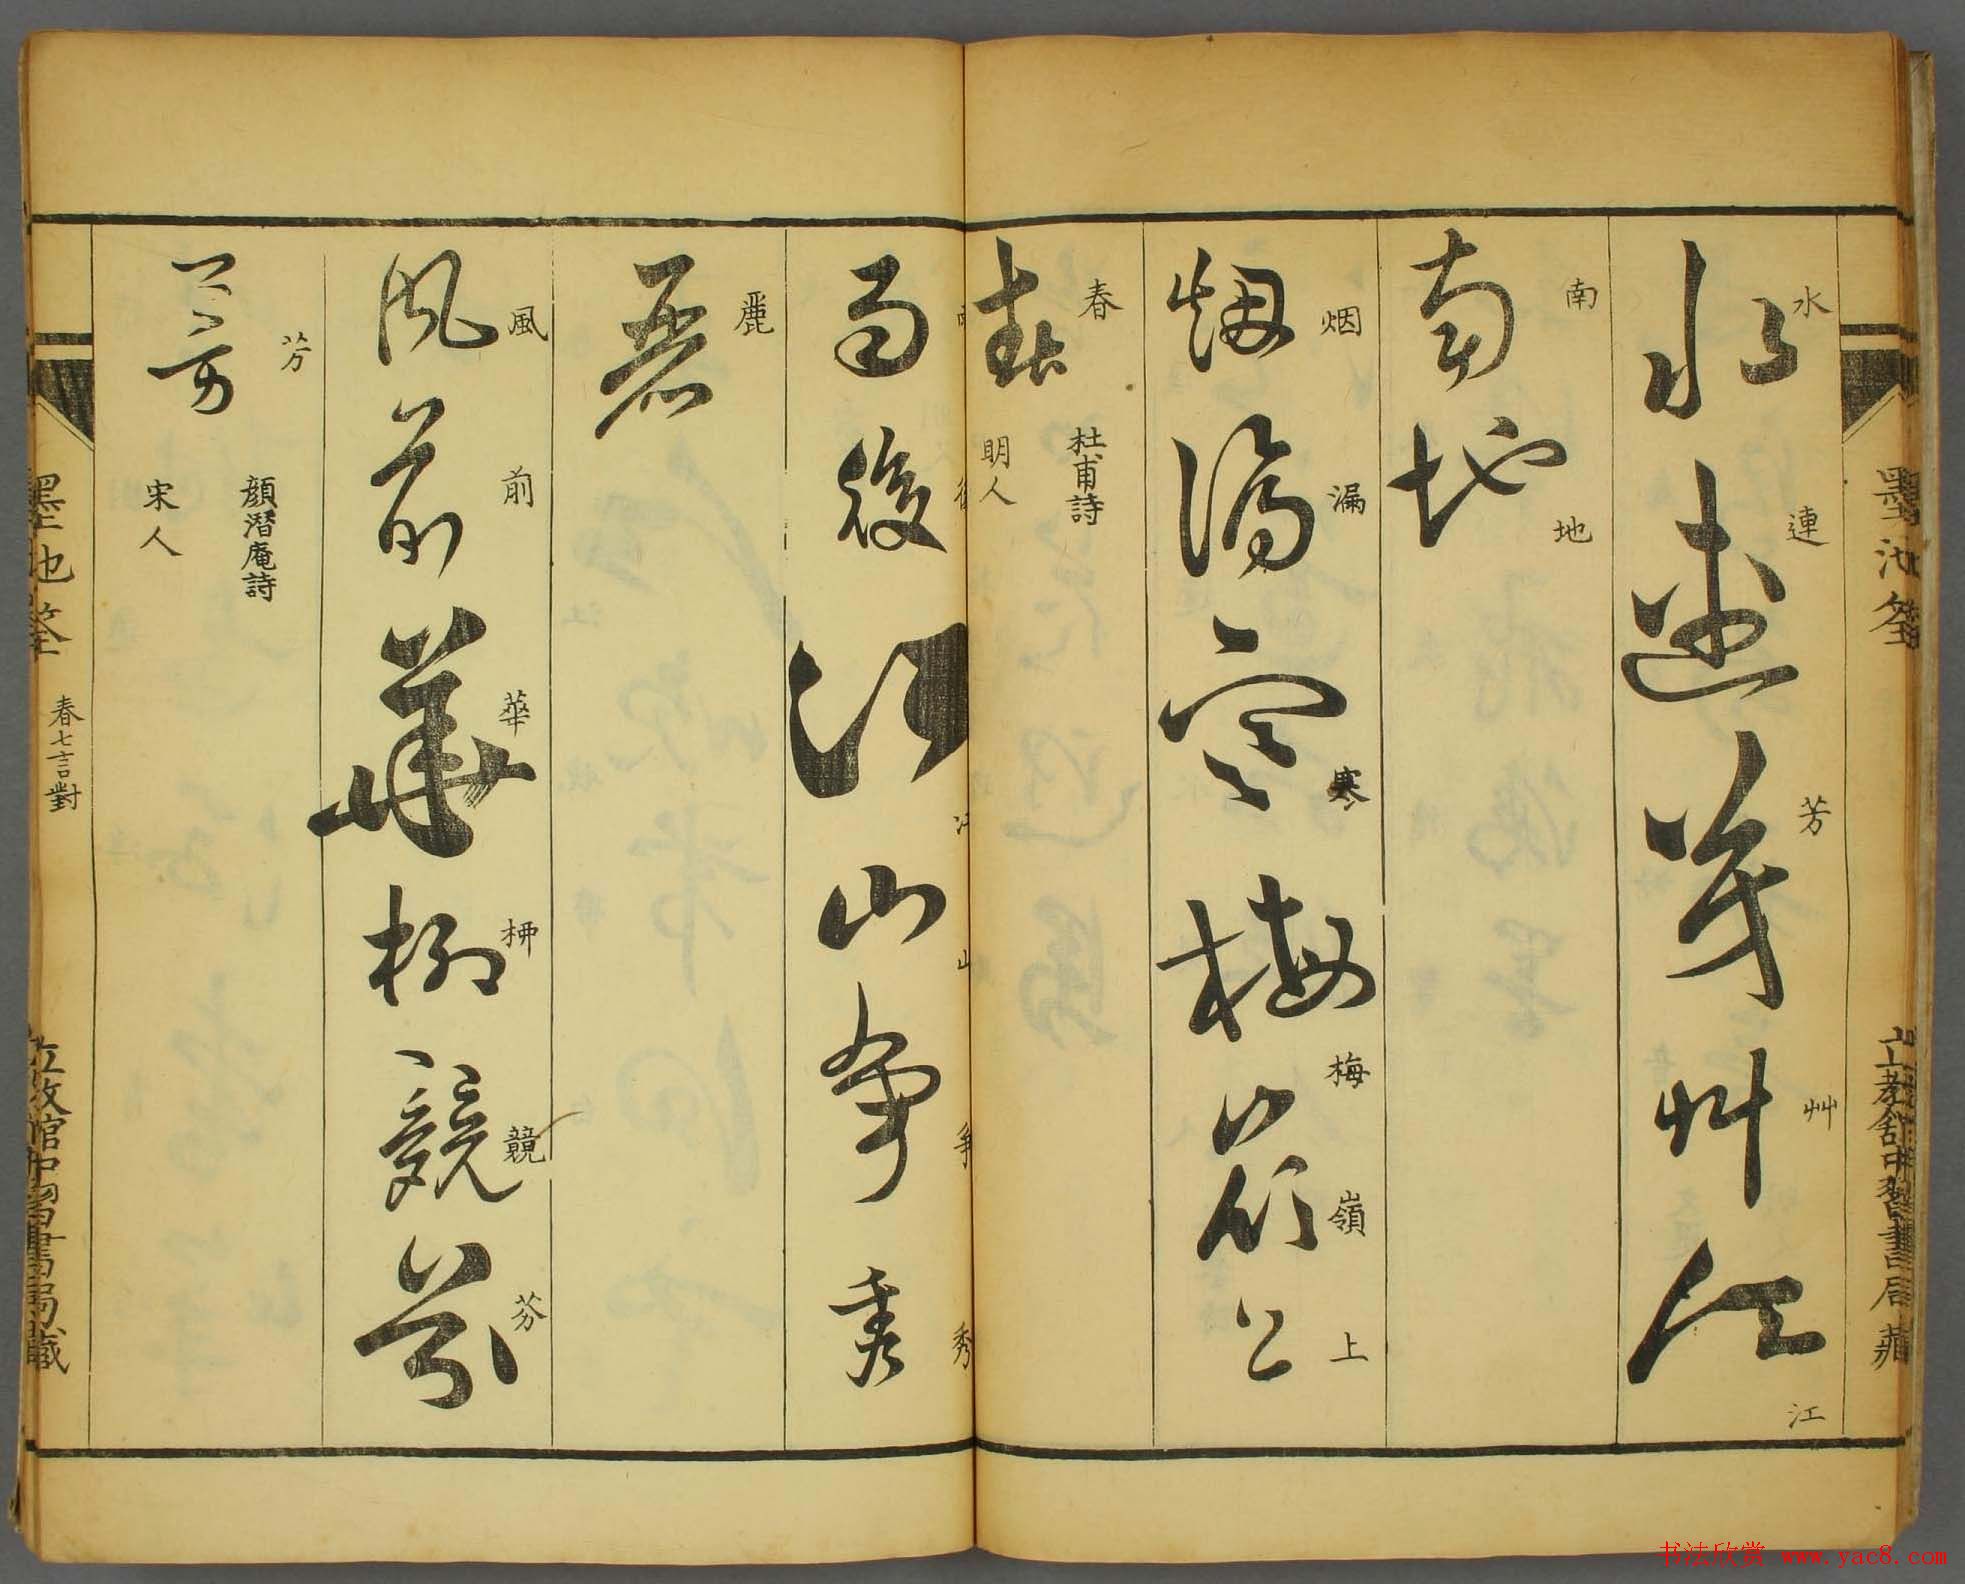 水連芳艸江
水 連 芳 艸 江
南地
南 地
烟漏寒梅嶺上
烟 漏 寒 梅 嶺 上
春
春
杜甫詩
明人
雨後江山爭秀
山 爭 秀
麗
麗
風前華柳競芬
風 前 華 桺 競 芬
芳
芳
顏潛庵詩
宋人
墨池筌
春七言對
立教館中習書局藏
墨池筌
立教館中習書局藏
书法欣赏 www.yac8.com